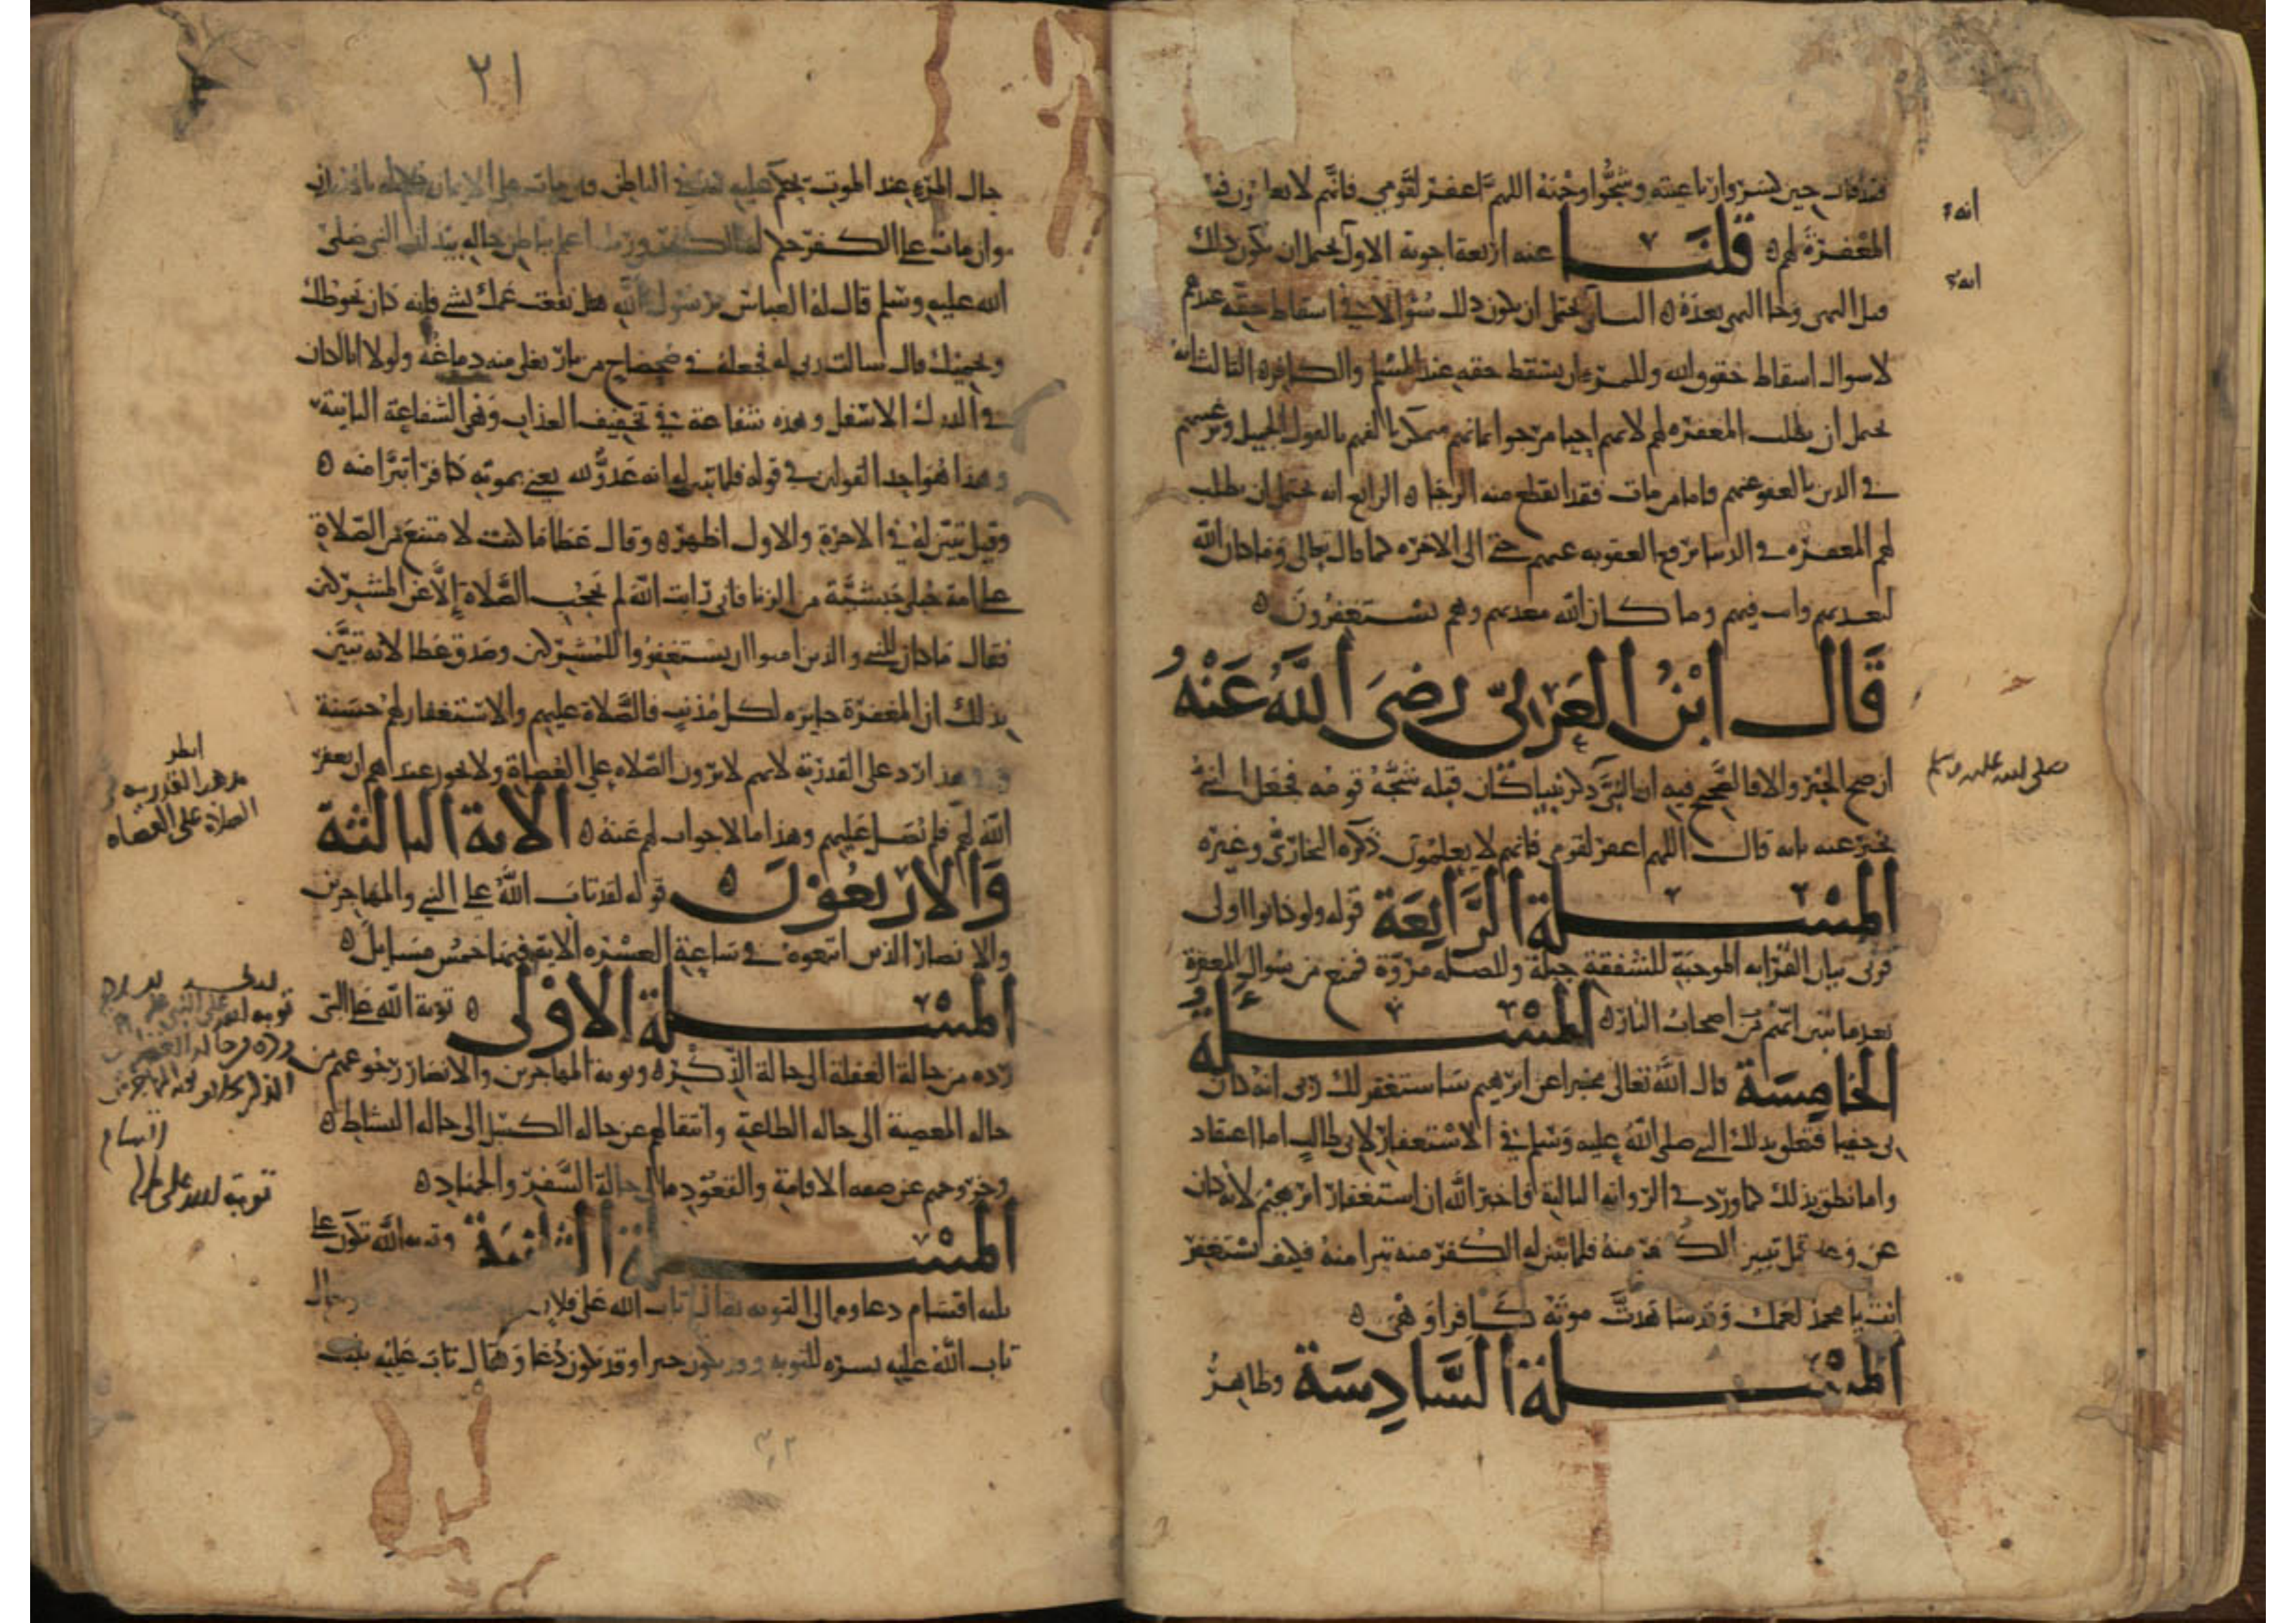 فقد قال حين كسروا رباعيته وشجوا وجنه اللهم اغفر لقومي فانهم لا يعلمون فيه
المغفرة لهم ه قلنا عنه اربعة اجوبة الاول يحتمل ان يكون ذلك
قبل النهي وجا النهي بعده ه الثاني يحتمل ان يكون ذلك سؤالا في اسقاط حقه عندهم
لا سوال اسقاط حقوق الله وللمرء ان يسقط حقه عند المسلم والكافر ه الثالث انه
يحتمل ان يطلب المغفره لهم لانهم احيا مرجو ايمانهم ممكن تالفهم بالقول الجميل وترغيبهم
في الدين بالعفو عنهم فاما من مات فقد انقطع منه الرجا ه الرابع انه يحتمل ان يطلب
لهم المغفره في الدنيا برفع العقوبه عنهم حتى الى الاخره كما قال تعالى وما كان الله
ليعذبهم وانت فيهم وما كان الله معذبهم وهم يستغفرون ه
قال ابن العربي رضي الله عنه
ان صح الخبر والا فالصحيح فيه ان النبي ذكر نبيا كان قبله شجه قومه فجعل النبي
يخبر عنه بانه قال اللهم اغفر لقومي فانهم لا يعلمون ذكره البخاري وغيره
المسلة الرابعة قوله ولو كانوا اولى
قربى بيان القرابه الموجبة للشفقة جبلة وللصله مروة فمنع من سوال المغفرة
بعد ما تبين انهم من اصحاب النار ه المسئلة
الخامسة قال الله تعالى مخبرا عن ابرهيم ساستغفر لك ربي انه كان
بي حفيا فتعلق بذلك النبي صلى الله عليه وسلم في الاستغفار لابي طالب اما اعتقاد
واما نطق بذلك كما ورد في الروايه الثانية فاخبر الله ان استغفار ابرهيم لابيه كان
عن وعد قبل تبين الكفر منه فلما تبين له الكفر منه تبرا منه فكيف تستغفر
انت يا محمد لعمك وقد شاهدت موته كافرا وهي ه
المسئلة السادسة وظاهر
انه
انه
صلى الله عليه وسلم
٢١
حال المرء عند الموت يحكم عليه به في الباطن فان مات على الايمان حكم له بالايمان
وان مات على الكفر حكم له بالكفر وربك اعلم بباطن حاله بيد ان النبي صلى
الله عليه وسلم قال له العباس يرسول الله هل نفعت عمك بشي فانه كان يحوطك
ويحميك قال سالت ربي له فجعله في ضحضاح من نار يغلي منه دماغه ولولا انا لكان
في الدرك الاسفل وهذه شفاعة في تخفيف العذاب وهي الشفاعة الثانية
وهذا هو احد القولين في قوله فلما تبين له انه عدو لله يعني بموته كافرا تبرا منه ه
وقيل تبين له في الاخرة والاول اظهر ه وقال عطا ما كنت لامتنع من الصلاة
على امة حبلى حبشية من الزنا فاني رايت الله لم يحجب الصلاة الا عن المشركين
فقال ما كان للنبي والذين امنوا ان يستغفروا للمشركين وصدق عطا لانه تبين
بذلك ان المغفرة جايزه لكل مذنب فالصلاة عليهم والاستغفار لهم حسنة
وفي هذا رد على القدرية لانهم لا يرون الصلاه على العصاة ولا يجوز عندهم ان يغفر
الله لهم فلم نصل عليهم وهذا ما لا جواب لهم عنه ه الاية الثالثة
والاربعون ه قوله لقد تاب الله على النبي والمهاجرين
والانصار الذين اتبعوه في ساعة العسره الاية فيها خمس مسايل ه
المسئلة الاولى ه توبة الله على النبي
رده من حالة الغفلة الى حالة الذكر ه وتوبة المهاجرين والانصار رجوعهم من
حاله المعصية الى حاله الطاعة وانتقالهم عن حاله الكسل الى حاله النشاط ه
وخروجهم عن صفه الاقامة والقعود الى حالة السفر والجهاد ه
المسئلة الثانية وتوبه الله تكون على
ثلثه اقسام دعاوه الى التوبه يقال تاب الله على فلان ويقال
تاب الله عليه يسره للتوبه وقد يكون خبرا وقد يكون دعا ويقال تاب عليه ثبته
انظر
مذهب القدريه في
الصلاة على العصاه
توبه الله على النبي
رده من حالة الغفلة
الذكر توبة المهاجرين
اقسام
توبة الله على